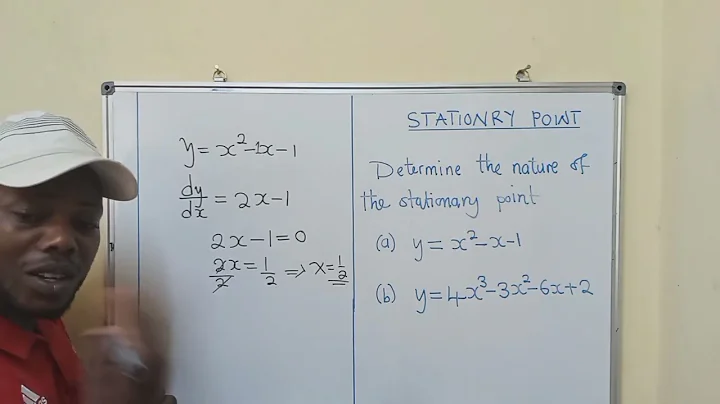 y = x² - 1x - 1
dy/dx = 2x - 1
2x - 1 = 0
2x/2 = 1/2 ⇒ x = 1/2
STATIONRY POINT
Determine the nature of
the stationary point
(a) y = x² - x - 1
(b) y = 4x³ - 3x² - 6x + 2